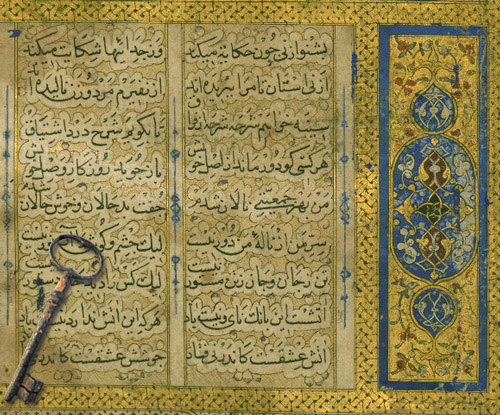 بشنو از نی چون حکایت میکند وز جدائیها شکایت میکند
از نیستان تا مرا ببریده اند از نفیرم مرد و زن نالیده اند
سینه خواهم شرحه شرحه از فراق تا بگویم شرح درد اشتیاق
هر کسی کو دور ماند از اصل خویش باز جوید روزگار وصل خویش
من بهر جمعیتی نالان شدم جفت بدحالان و خوش حالان
سر من از ناله من دور نیست لیک چشم نیست
تن ز جان و جان ز تن مستور نیست لیک کس را نیست
آتشست این بانگ نای و نیست باد هر که این آتش ندارد نیست باد
آتش عشقست کاندر نی فتاد جوشش عشقست کاندر